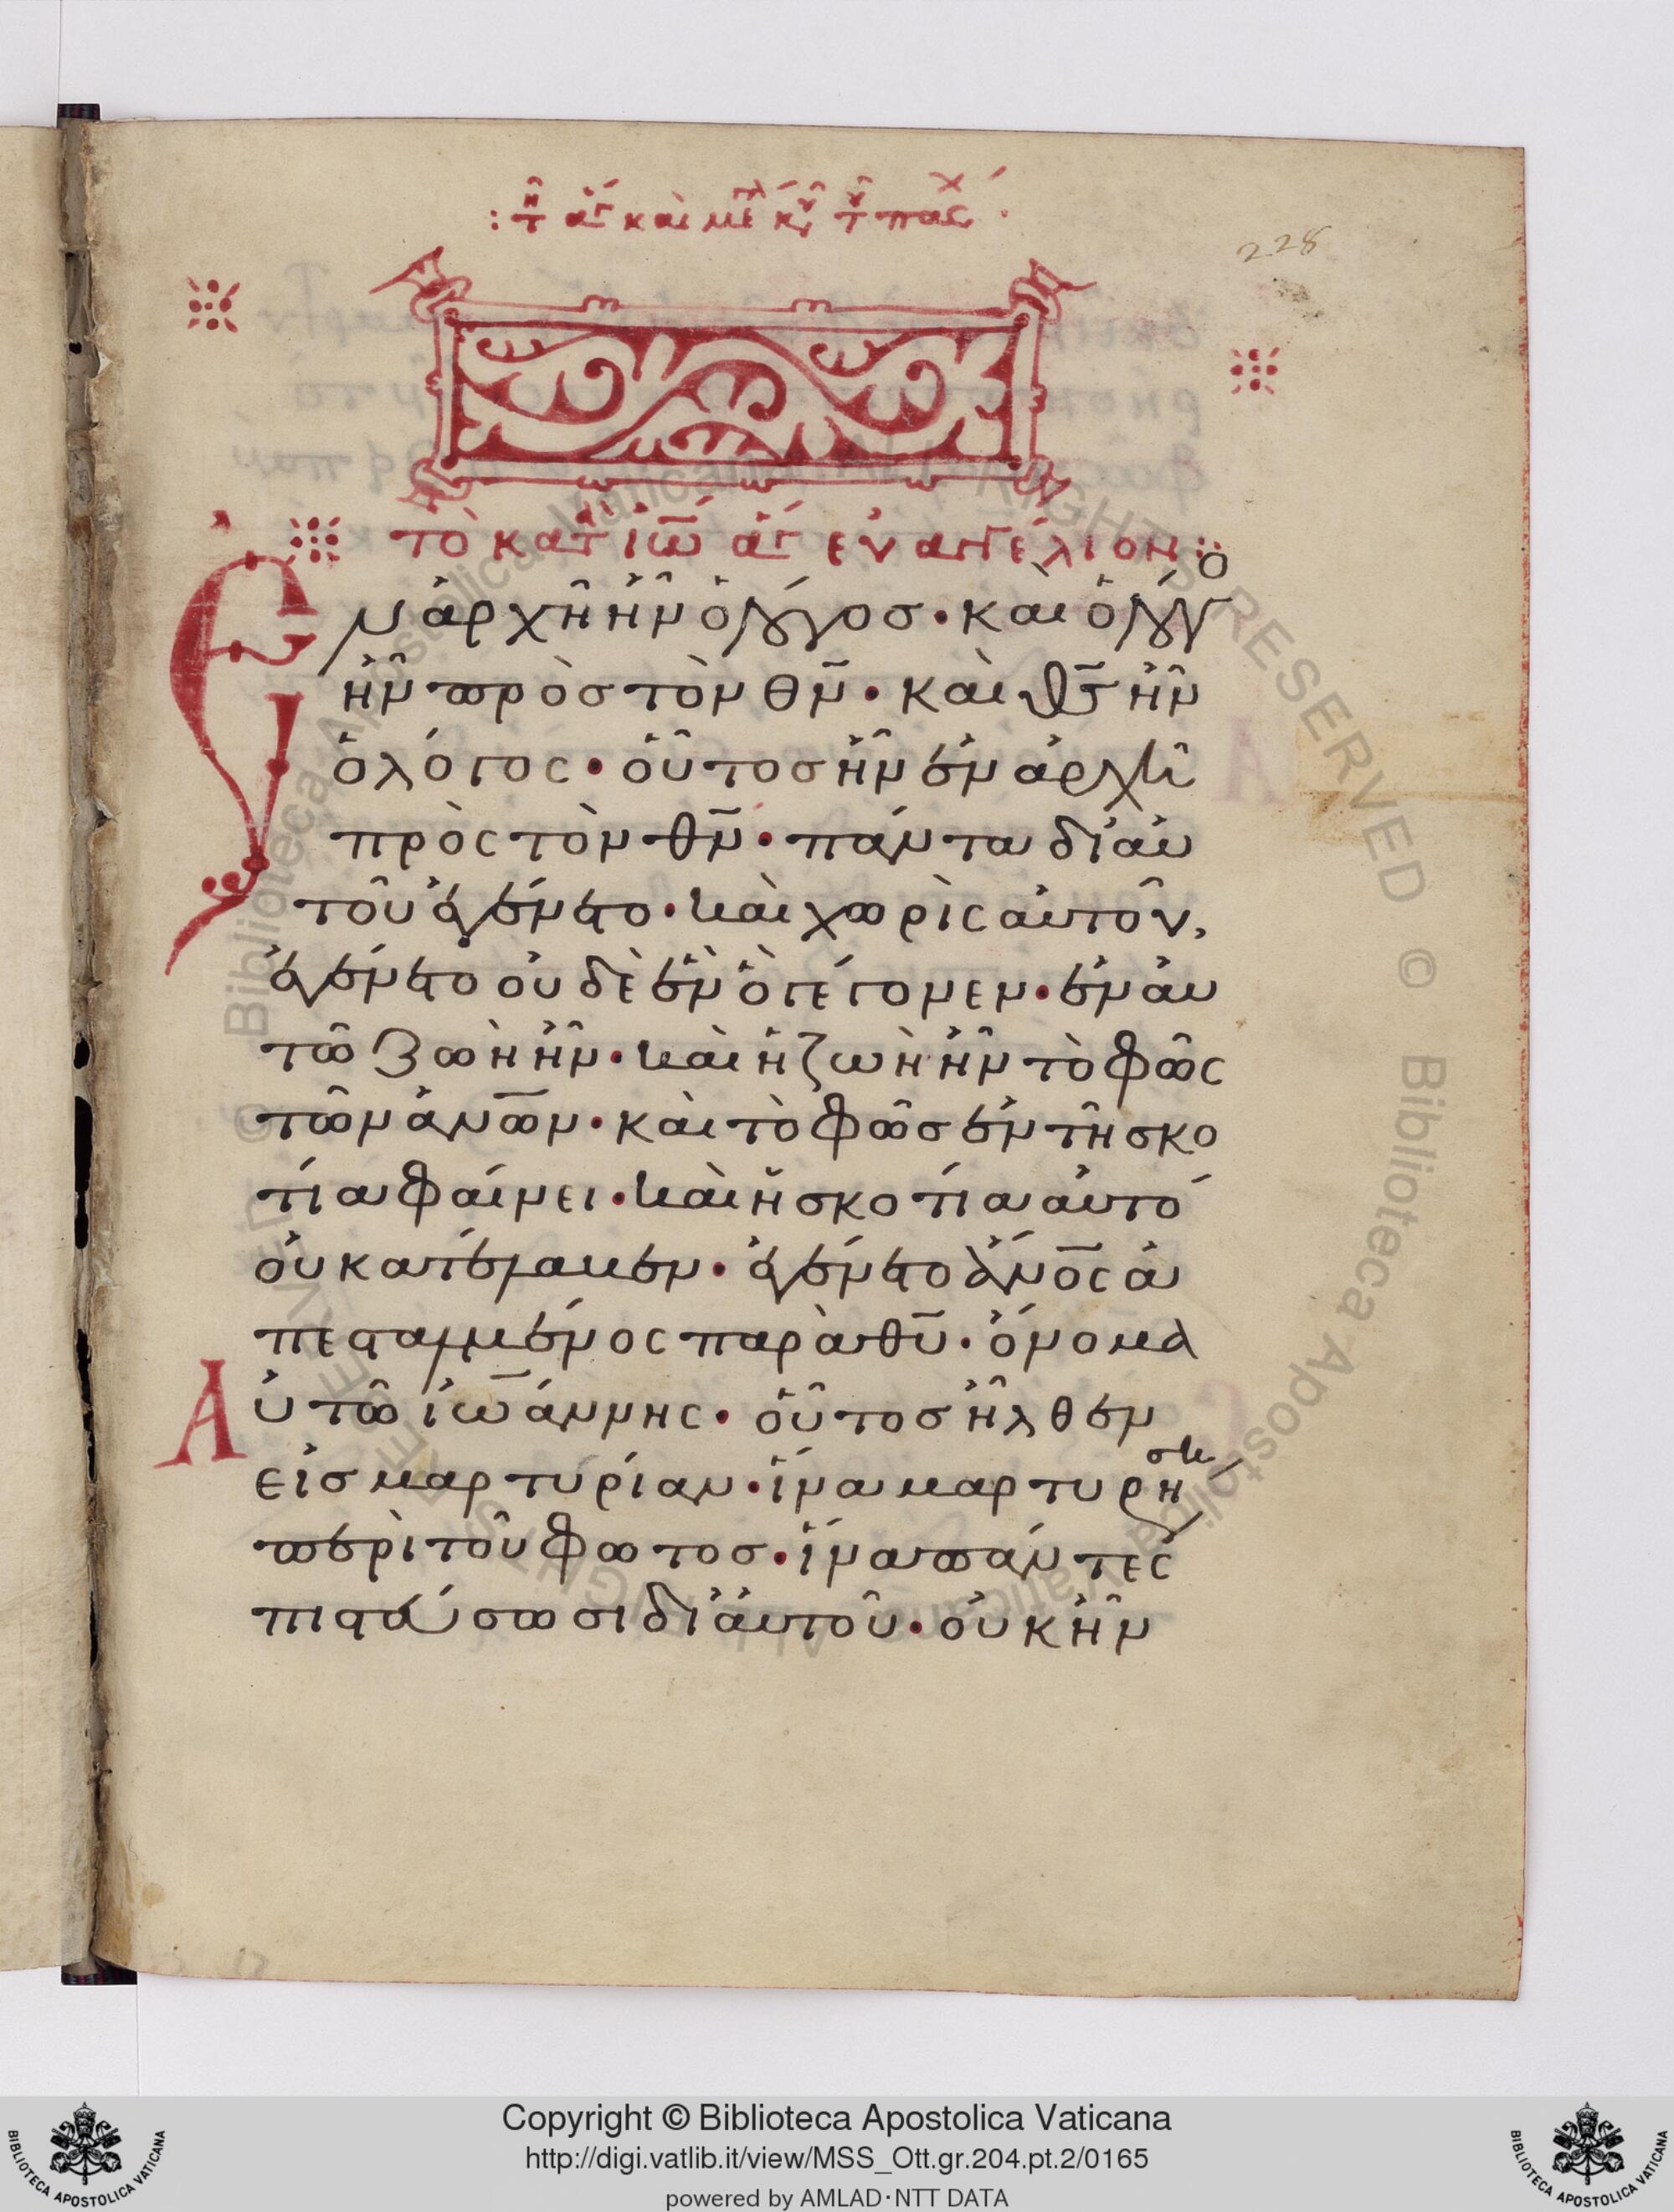 : τῇ ἁγ καὶ μεγλ κυ τ πασχ ·
228
τὸ κατ ἰω ἁγ εὐαγγέλιον
Ἐν ἀρχῆ ἦν ὁ λόγος · καὶ ὁ λόγο
ἦν πρὸς τὸν θν · καὶ θς ἦν
ὁ λόγος · οὗτος ἦν ἐν ἀρχῆ
πρὸς τὸν θν · πάντα δι' αυ
τοῦ ἐγένετο · καὶ χωρὶς αὐτοῦ,
ἐγένετο οὐδὲ ἓν ὃ γέγονεν · ἐν αὐ
τῶ ζωὴ ἦν · καὶ ἡ ζωὴ ἦν τὸ φῶς
τῶν ἀνων · καὶ τὸ φῶς ἐν τῆ σκο
τία φαίνει · καὶ ἡ σκοτία αὐτό
οὐ κατέλαβεν · ἐγένετο ἄνος ἀ
πεσταλμένος παρὰ θυ · ὄνομα
Αὐτῶ ἰωάννης · οὗτος ἦλθεν
εἰς μαρτυρίαν · ἵνα μαρτυρήση
περὶ τοῦ φωτος · ἵνα πάντες
πιστεύσωσι δι' αὐτοῦ · οὐκ ἦν
Copyright © Biblioteca Apostolica Vaticana
http://digi.vatlib.it/view/MSS_Ott.gr.204.pt.2/0165
powered by AMLAD·NTT DATA
BIBLIOTECA APOSTOLICA VATICANA
BIBLIOTECA APOSTOLICA VATICANA